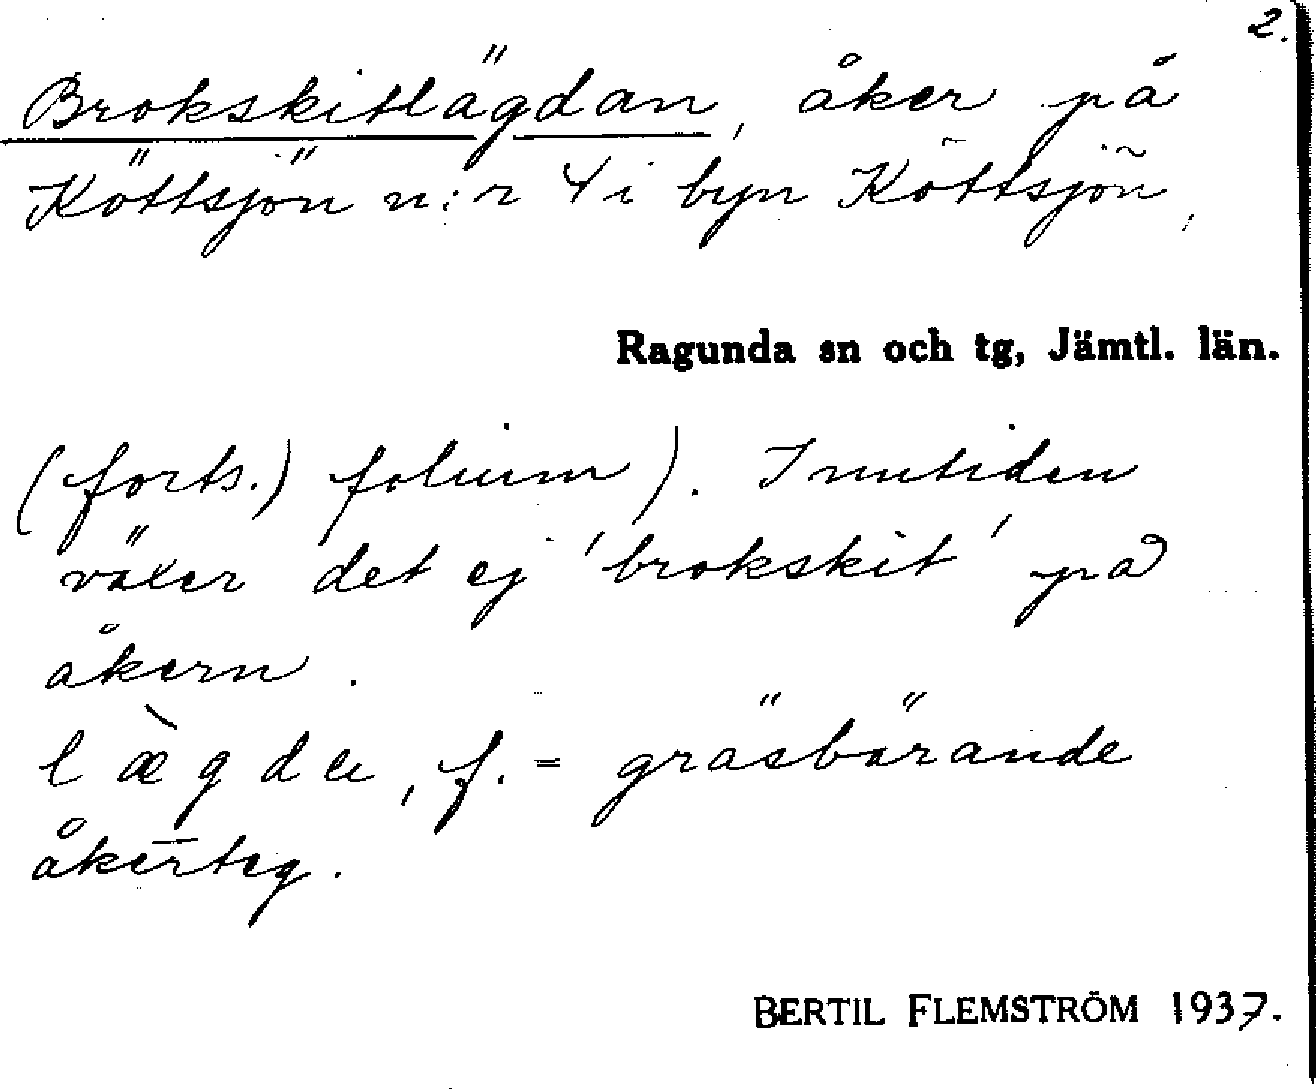 2.
Brokskitlägdan, åker på
Köttsjön n:r 4 i byn Köttsjön,
Ragunda sn och tg, Jämtl. län.
(forts.) folium). I nutiden
växer det ej 'brokskit' på
åkern.
læ̀gda, f. = gräsbärande
åkerteg.
BERTIL FLEMSTRÖM 1937.